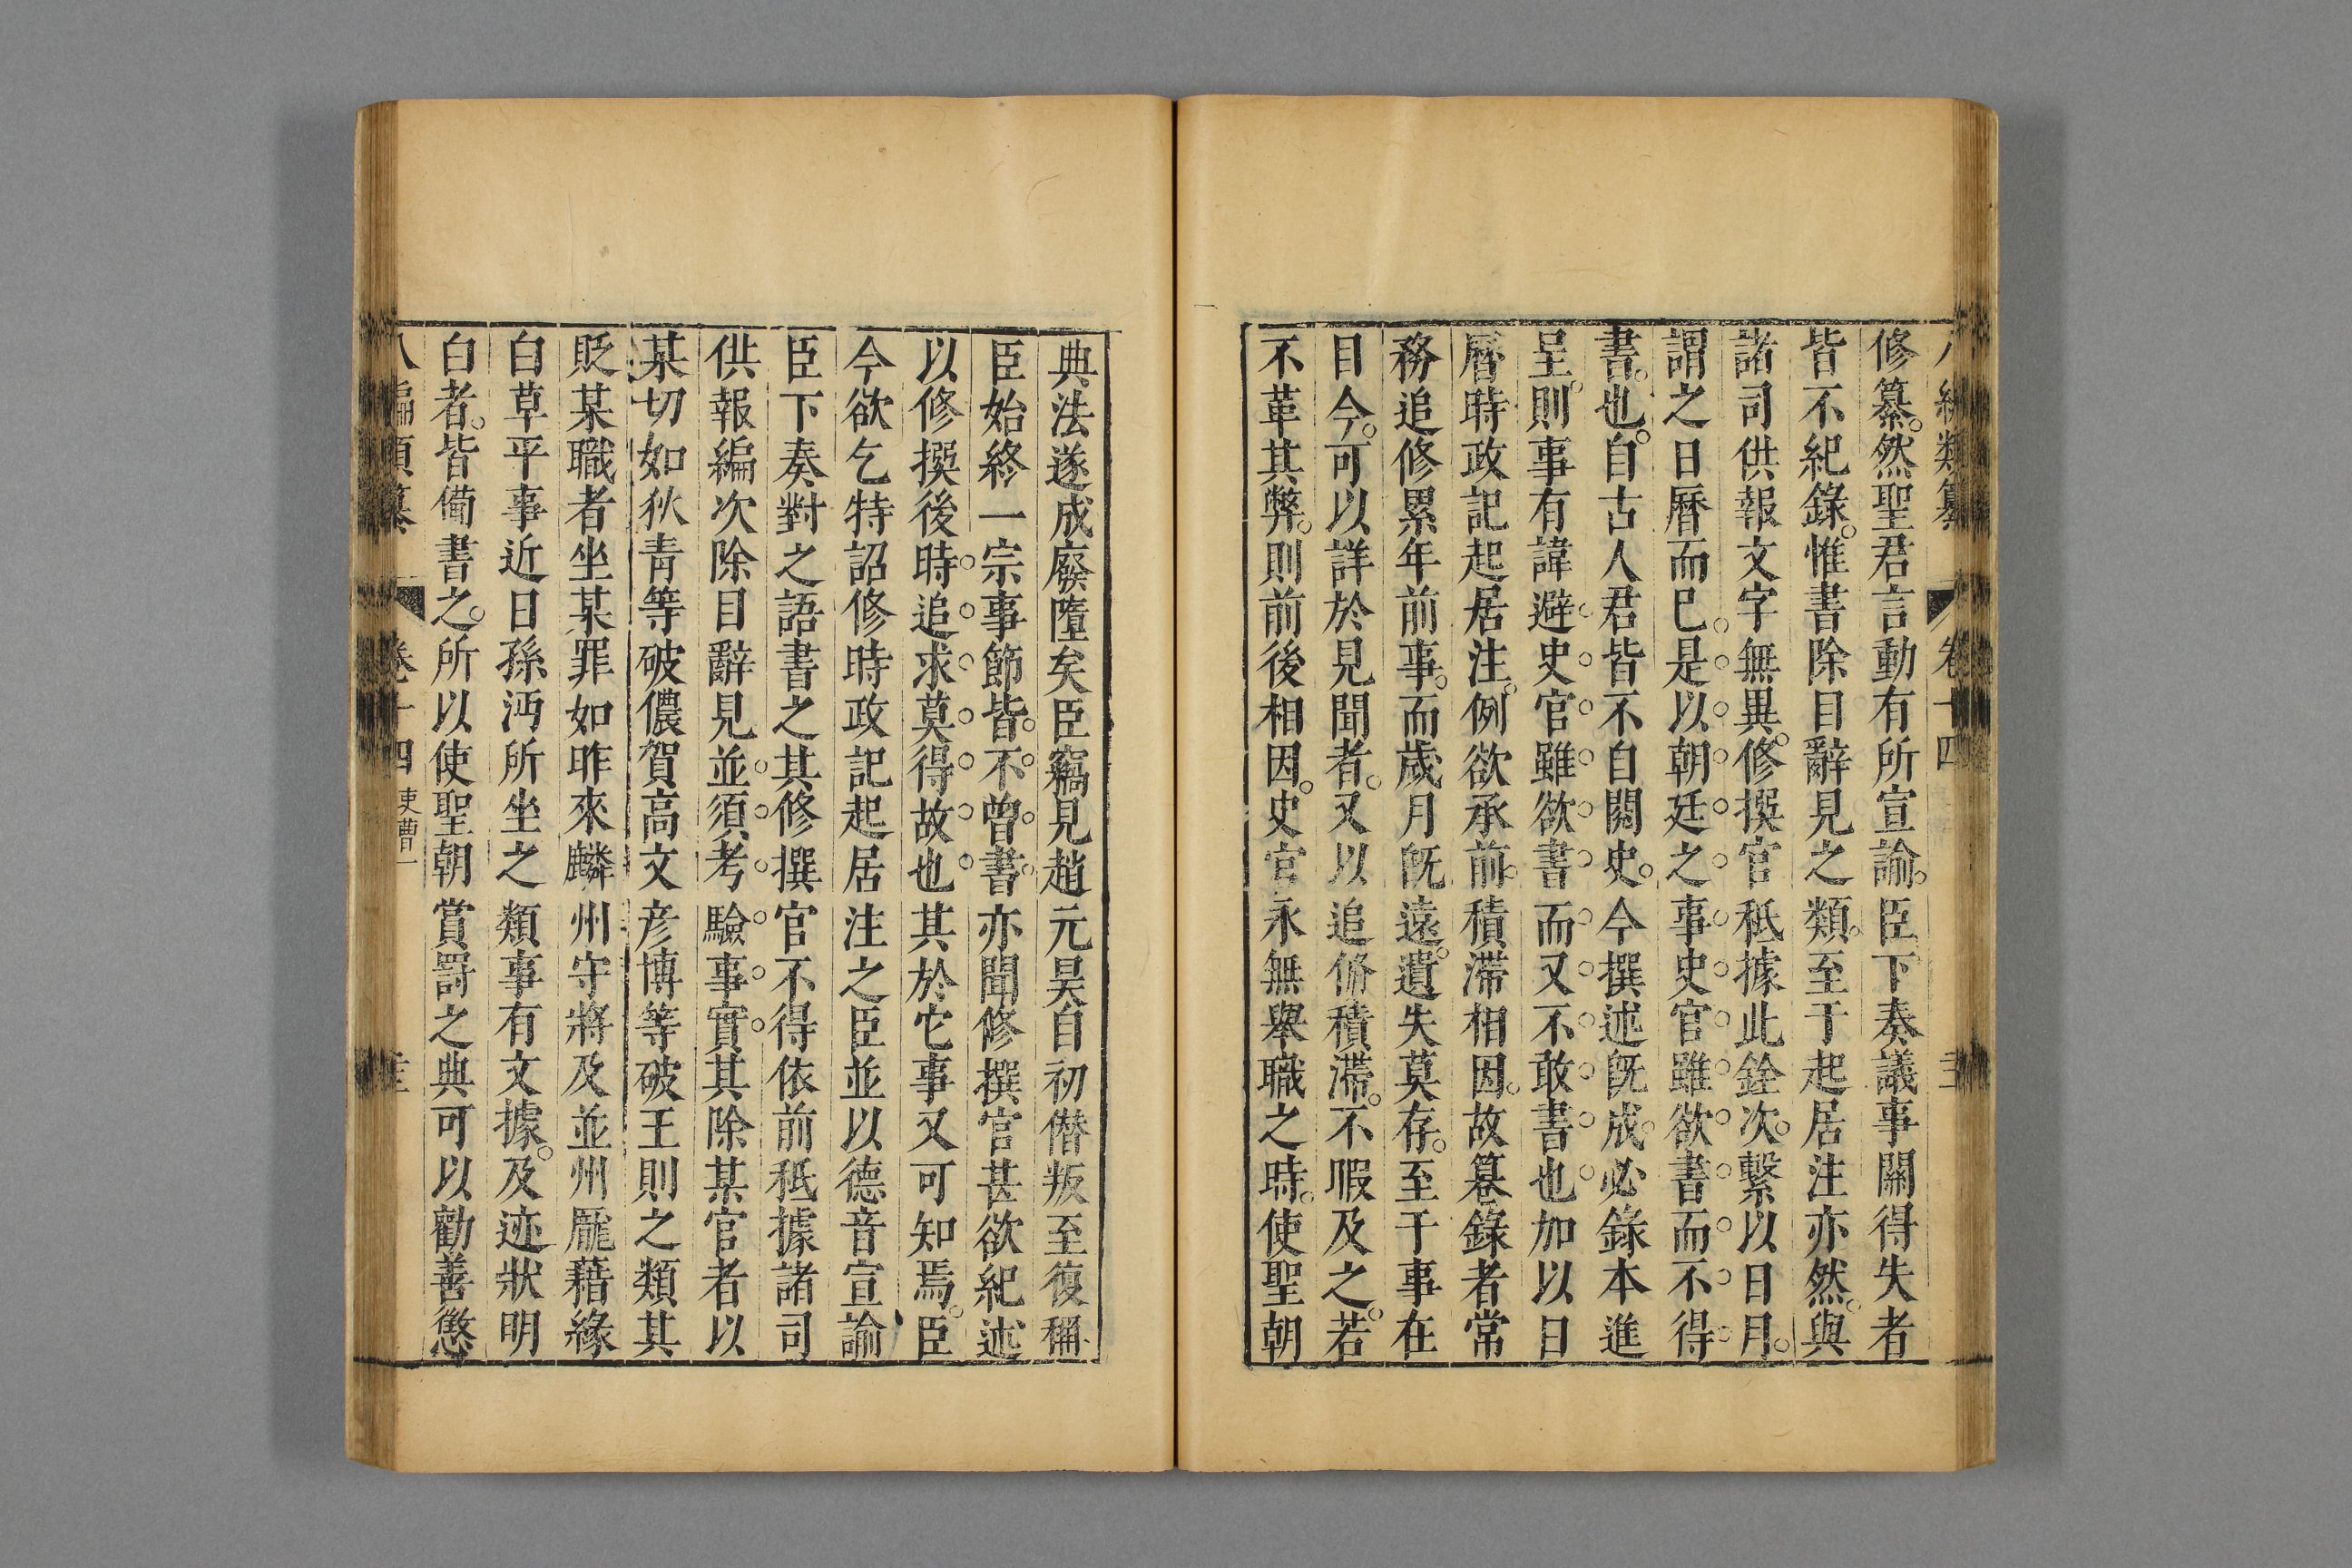 修纂然聖君言動有所宣諭臣下奏議事關得失者
皆不紀錄惟書除目辭見之類至于起居注亦然與
諸司供報文字無異修撰官秪據此銓次繫以日月
謂之日曆而巳是以朝廷之事史官雖欲書而不得
書也自古人君皆不自閱史今撰述旣成必錄本進
呈則事有諱避史官雖欲書而又不敢書也加以日
曆時政記起居注例欲承前積滯相因故纂錄者常
務追修累年前事而歲月旣遠遺失莫存至于事在
目今可以詳於見聞者又以追修積滯不暇及之若
不革其弊則前後相因史官永無舉職之時使聖朝
典法遂成廢墮矣臣竊見趙元昊自初僭叛至復稱
臣始終一宗事節皆不曾書亦聞修撰官甚欲紀述
以修撰後時追求莫得故也其於它事又可知焉臣
今欲乞特詔修時政記起居注之臣並以德音宣諭
臣下奏對之語書之其修撰官不得依前秪據諸司
供報編次除目辭見並須考驗事實其除某官者以
某切如狄青等破儂賀高文彦博等破王則之類其
貶某職者坐某罪如昨來麟州守將及並州龐藉緣
白草平事近日孫沔所坐之類事有文據及迹狀明
白者皆備書之所以使聖朝賞罰之典可以勸善懲
八編類纂 卷十四 吏曹一